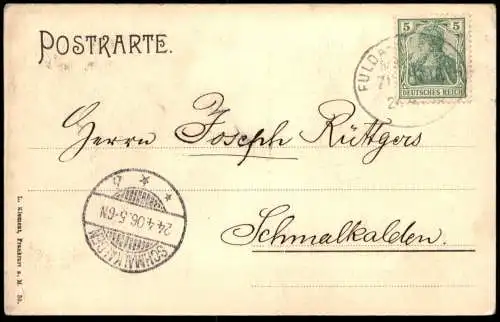 POSTKARTE.
5
DEUTSCHES REICH
FULDA
Herrn Joseph Rüttgers
Schmalkalden.
SCHMALKALDEN
24.4.06.5-6N
* b *
L. Klement, Frankfurt a. M. 30.